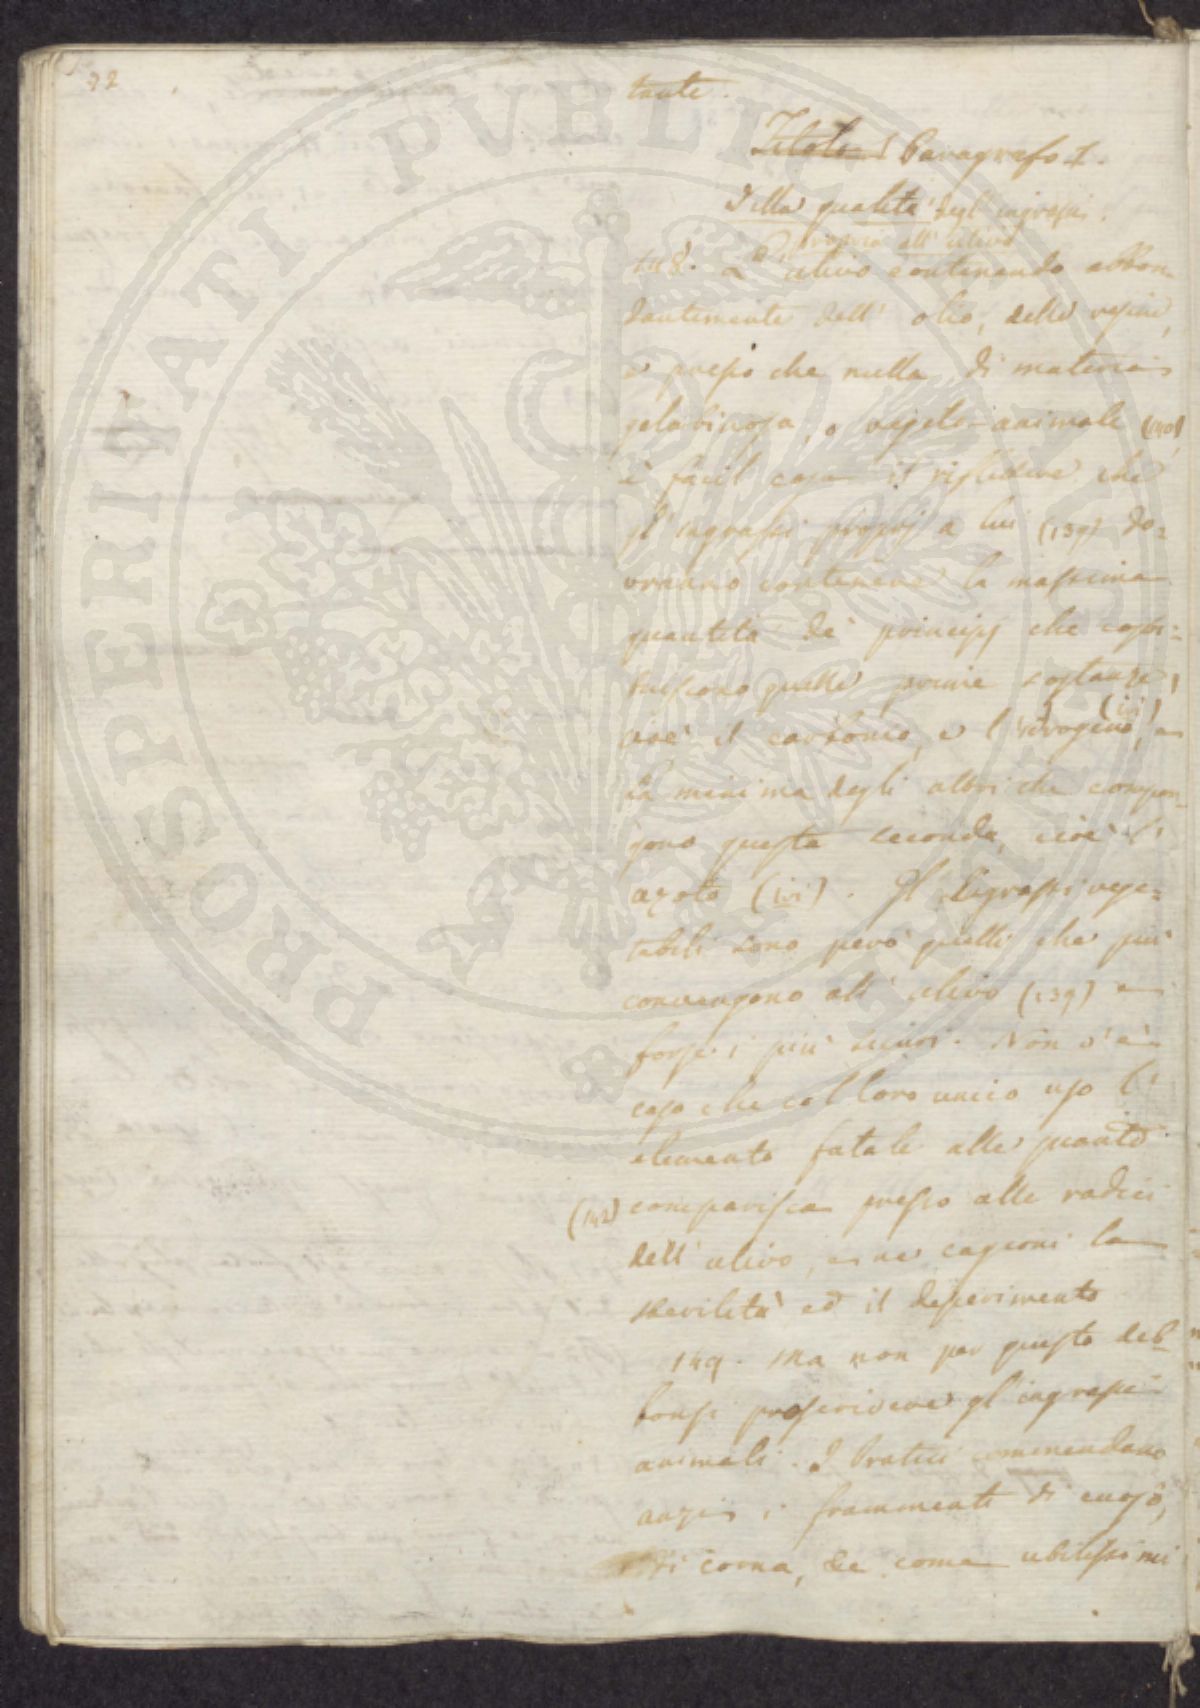 22
tante.
Titolo I Paragrafo I.
Della qualità degl'ingrassi
propria all'ulivo
148. L'ulivo contenendo abbon-
dantemente dell'olio, delle resine,
e presso che nulla di materia
gelatinosa, o vegeto-animale (140)
è facil cosa il riflettere che
gl'ingrassi proprj a lui (139) do-
vranno contenere la massima
quantità de' principj che costi-
tuiscono quelle prime sostanze,
cioè il carbonio, e l'idrogeno (ivi), e
la minima degli altri che compon-
gono questa seconda, cioè l'
azoto (ivi). Gl'Ingrassi vege-
tabili sono però quelli che più
convengono all'ulivo (139) e
forse i più sicuri. Non v'è
caso che col loro unico uso l'
elemento fatale alle piante
(142) comparisca presso alle radici
dell'ulivo, e ne cagioni la
sterilità ed il deperimento
149. Ma non per questo deb-
bonsi proscrivere gl'ingrassi
animali. I Pratici commendano
anzi i frammenti di cuojo,
di corna, &c come utilissimi
PROSPERITATI PVBLICAE